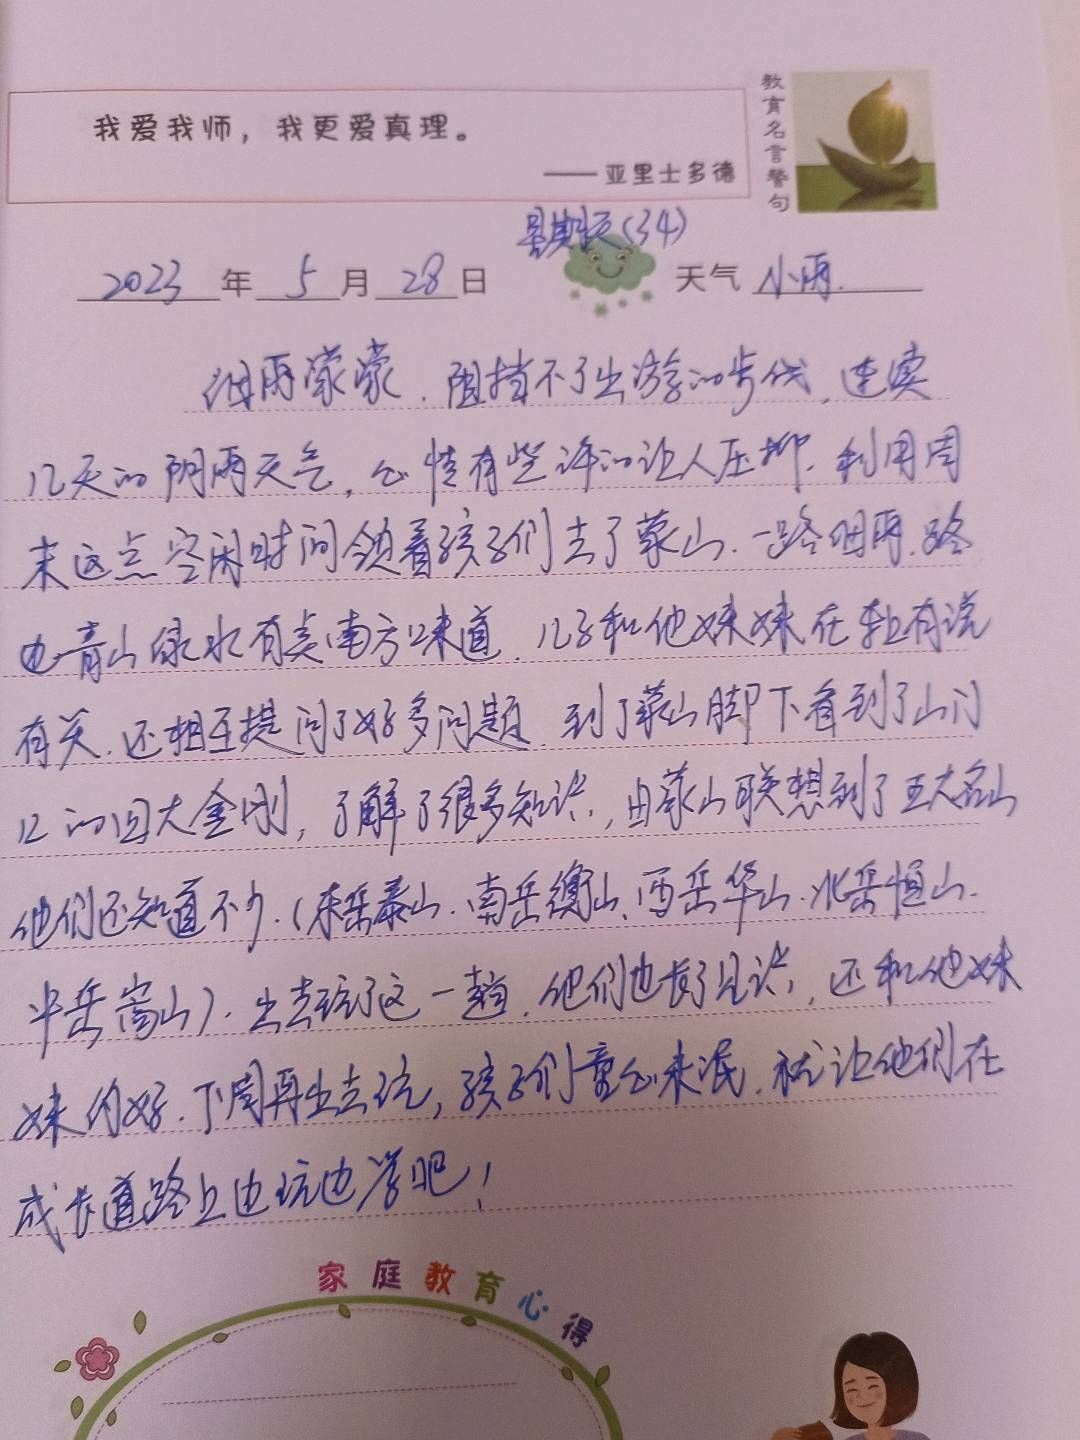 我爱我师，我更爱真理。
——亚里士多德
教育名言警句
星期天(34)
2023年5月28日 天气 小雨.
烟雨蒙蒙，阻挡不了出游的步伐，连续
几天的阴雨天气，心情有些许的让人压抑，利用周
末这点空闲时间领着孩子们去了蒙山，一路烟雨，路
边青山绿水有点南方味道，儿子和他妹妹在车上有说
有笑，还相互提问了好多问题，到了蒙山脚下看到了山门
口的四大金刚，了解了很多知识，由蒙山联想到了五大名山
他们还知道不少.(东岳泰山、南岳衡山、西岳华山、北岳恒山、
中岳嵩山)，出去玩了这一趟，他们也长了见识，还和他妹
妹约好，下周再出去玩，孩子们童心未泯，就让他们在
成长道路上边玩边学吧！
家庭教育心得